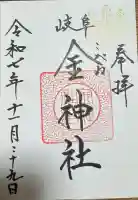 奉拝
岐阜
こがね
金神社
令和七年十一月二十九日